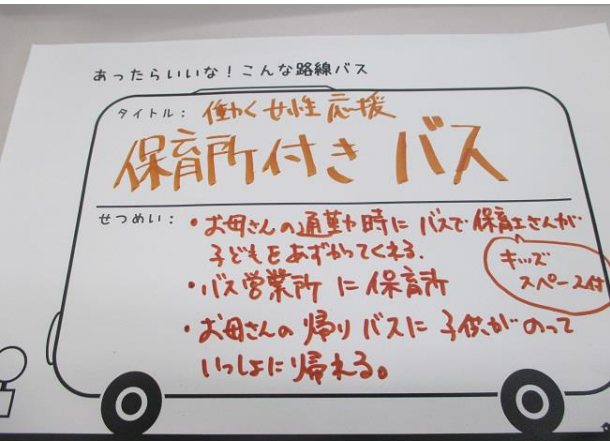 あったらいいな！こんな路線バス
タイトル： 働く女性応援
保育所付き バス
せつめい：
・お母さんの通勤時に バスで保育士さんが
子どもをあずかってくれる。
キッズ
スペース付
・バス営業所 に 保育所
・お母さんの 帰り バスに 子供がのって
いっしょに帰れる。